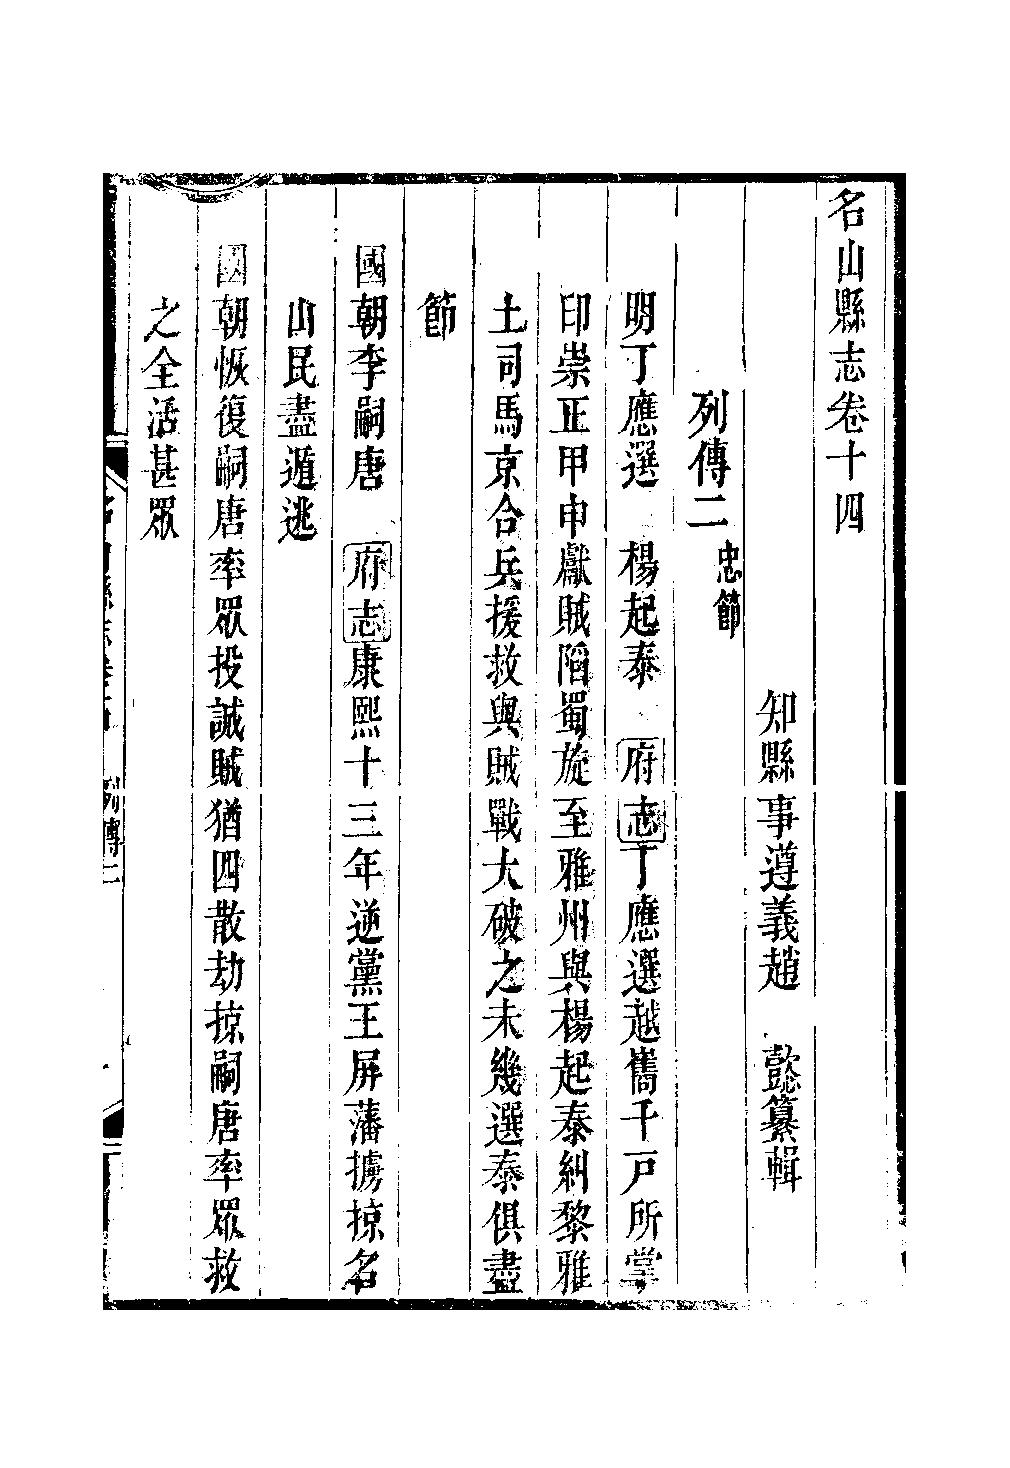 名山縣志卷十四
知縣事遵義趙　懿纂輯
列傳二 忠節
明丁應選　楊起泰　府志丁應選越嶲千戸所掌
印崇正甲申獻賊陷蜀旋至雅州與楊起泰糾黎雅
土司馬京合兵援救與賊戰大破之未幾選泰俱盡
節
國朝李嗣唐　府志康熙十三年逆黨王屏藩擄掠名
山民盡遁逃
國朝恢復嗣唐率眾投誠賊猶四散劫掠嗣唐率眾救
之全活甚眾
名山縣志卷十四　列傳二　一